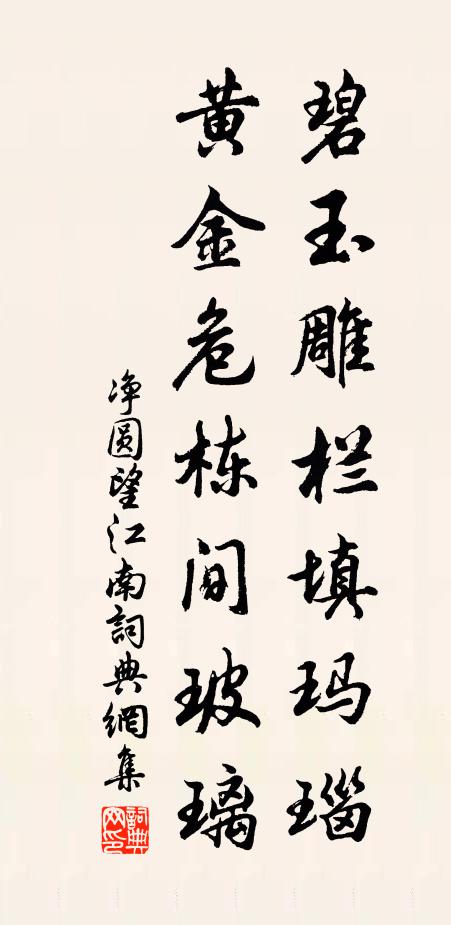 碧玉雕栏填玛瑙
黄金危栋间玻璃
净圆望江南詞典網集
詞典网印